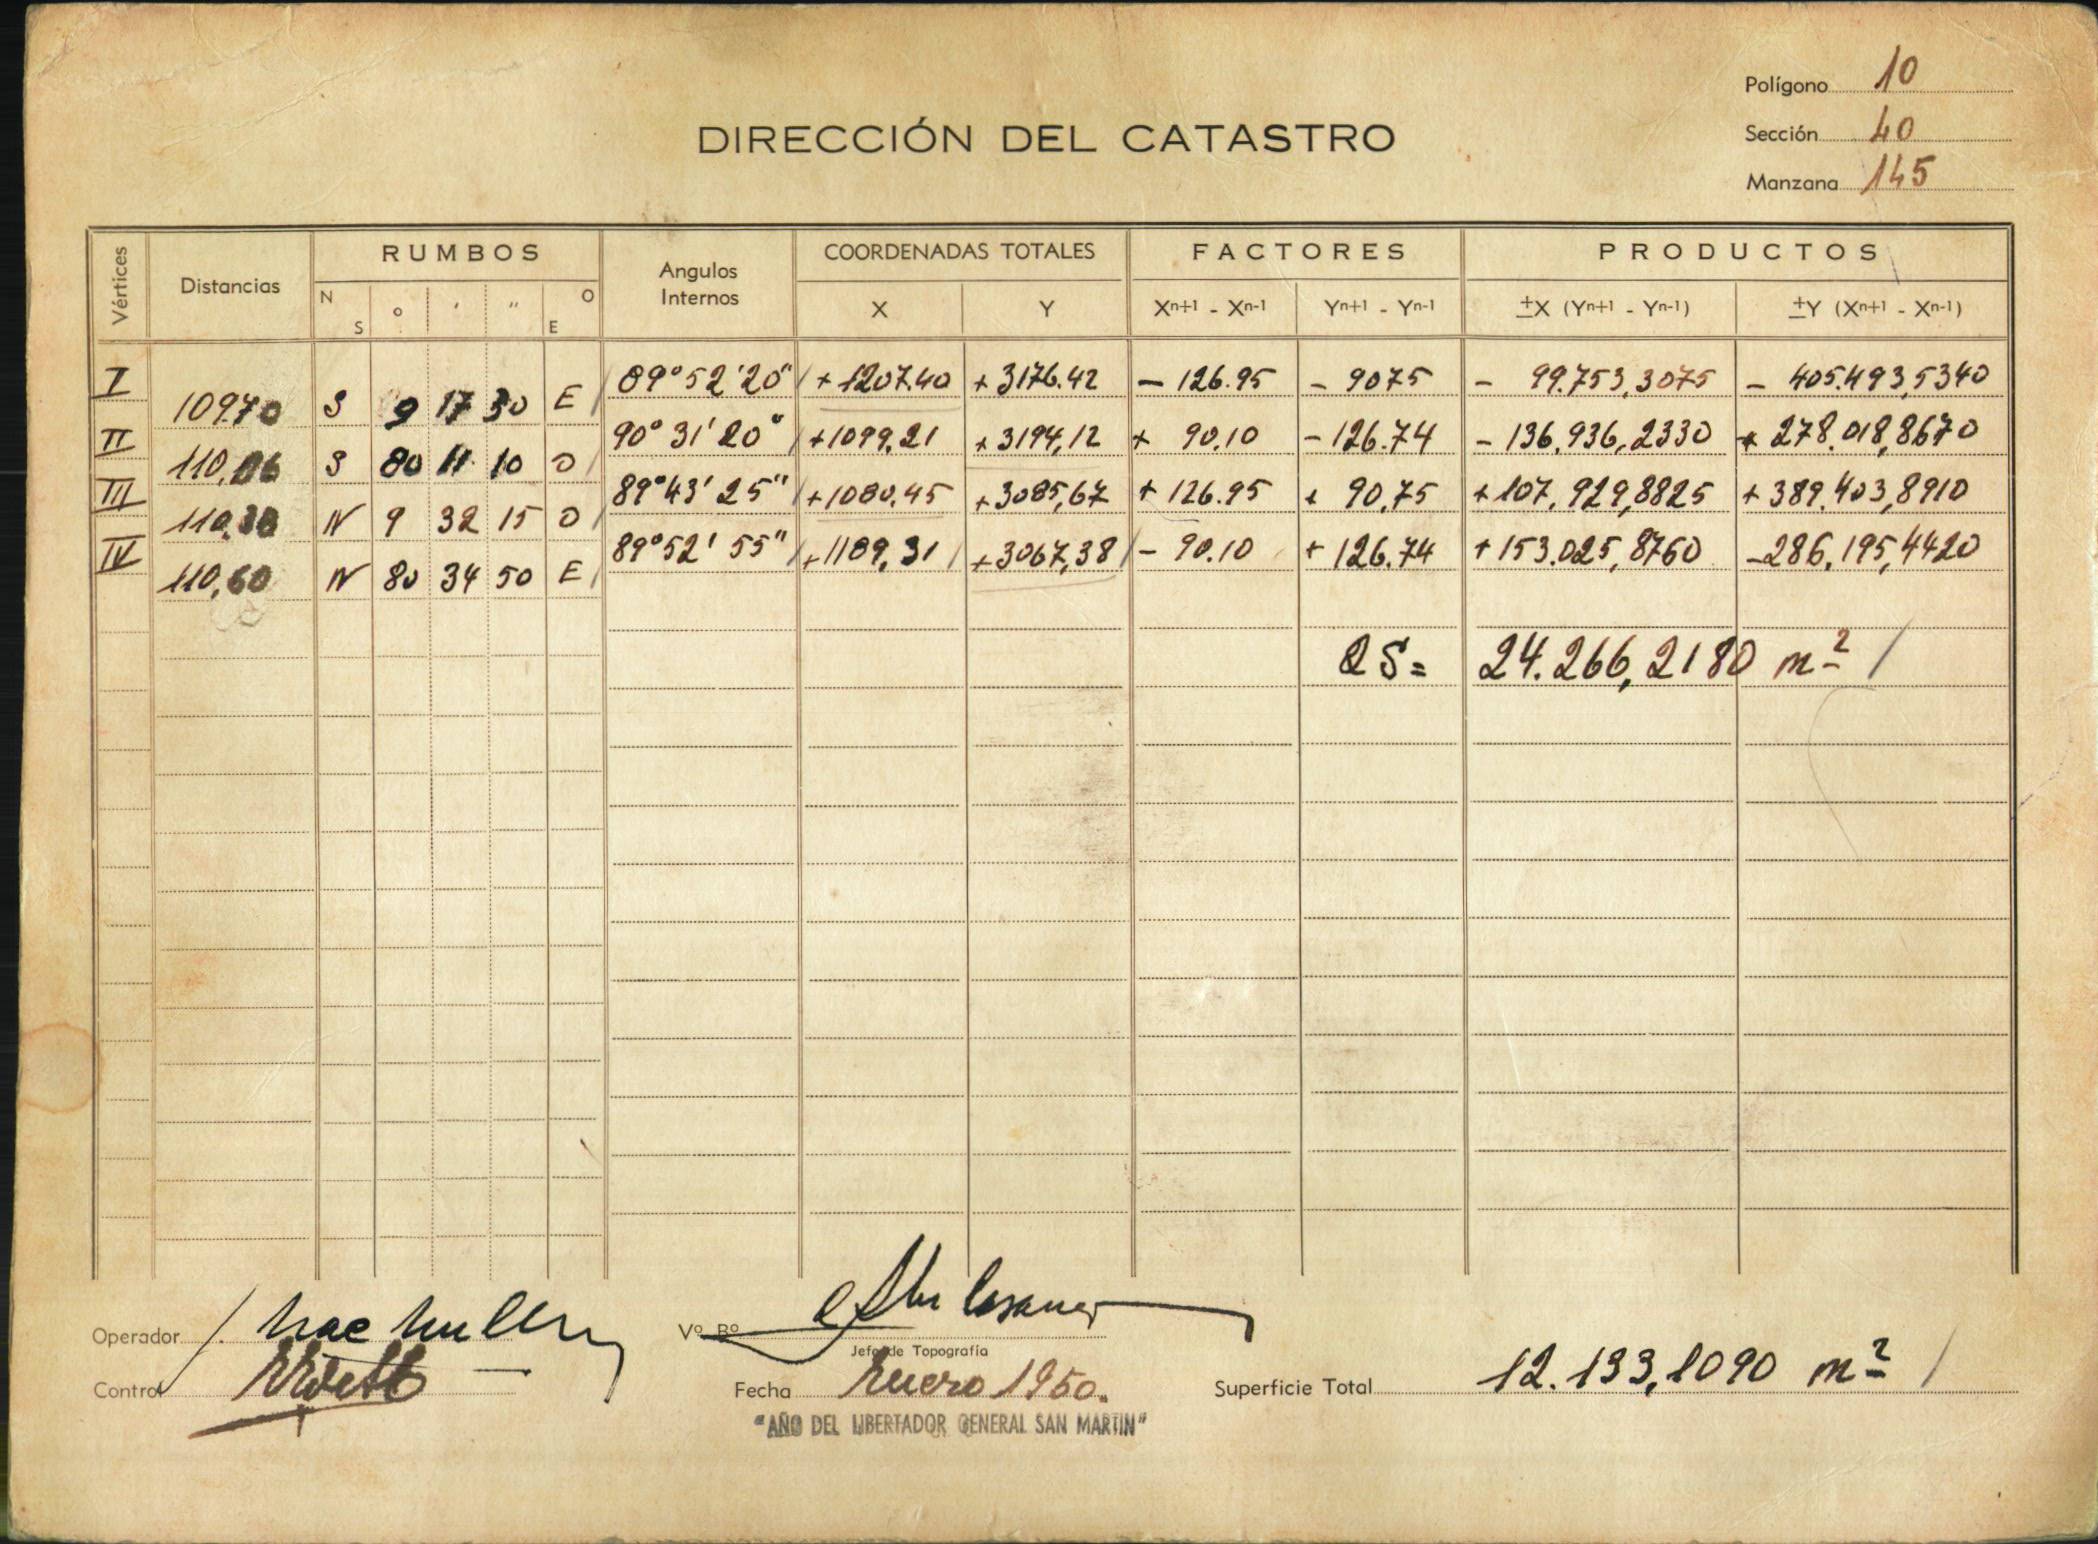 Polígono 10
DIRECCIÓN DEL CATASTRO
Sección 40
Manzana 145
Vértices Distancias RUMBOS Angulos Internos COORDENADAS TOTALES FACTORES PRODUCTOS
N S ° ' " O E X Y Xⁿ⁺¹ - Xⁿ⁻¹ Yⁿ⁺¹ - Yⁿ⁻¹ ±X (Yⁿ⁺¹ - Yⁿ⁻¹) ±Y (Xⁿ⁺¹ - Xⁿ⁻¹)
I 89°52'20" +1207.40 +3176.42 - 126.95 - 90.75 - 99.753,3075 - 405.493,5340
109.70 S 9 17 30 E
II 90°31'20" +1099.21 +3194,12 + 90.10 - 126.74 - 136.936,2330 + 278.018,8670
110,06 S 80 11 10 O
III 89°43'25" +1080.45 +3085,67 + 126.95 + 90.75 + 107.929,8825 + 389.403,8910
110,38 N 9 32 15 O
IV 89°52'55" +1189,31 +3067,38 - 90.10 + 126.74 + 153.025,8760 - 286.195,4420
110,60 N 80 34 50 E
2S= 24.266,2180 m²
Operador
Vº Bº
Jefe de Topografía
Control
Fecha Enero 1950.
Superficie Total 12.133,1090 m²
"AÑO DEL LIBERTADOR GENERAL SAN MARTIN"